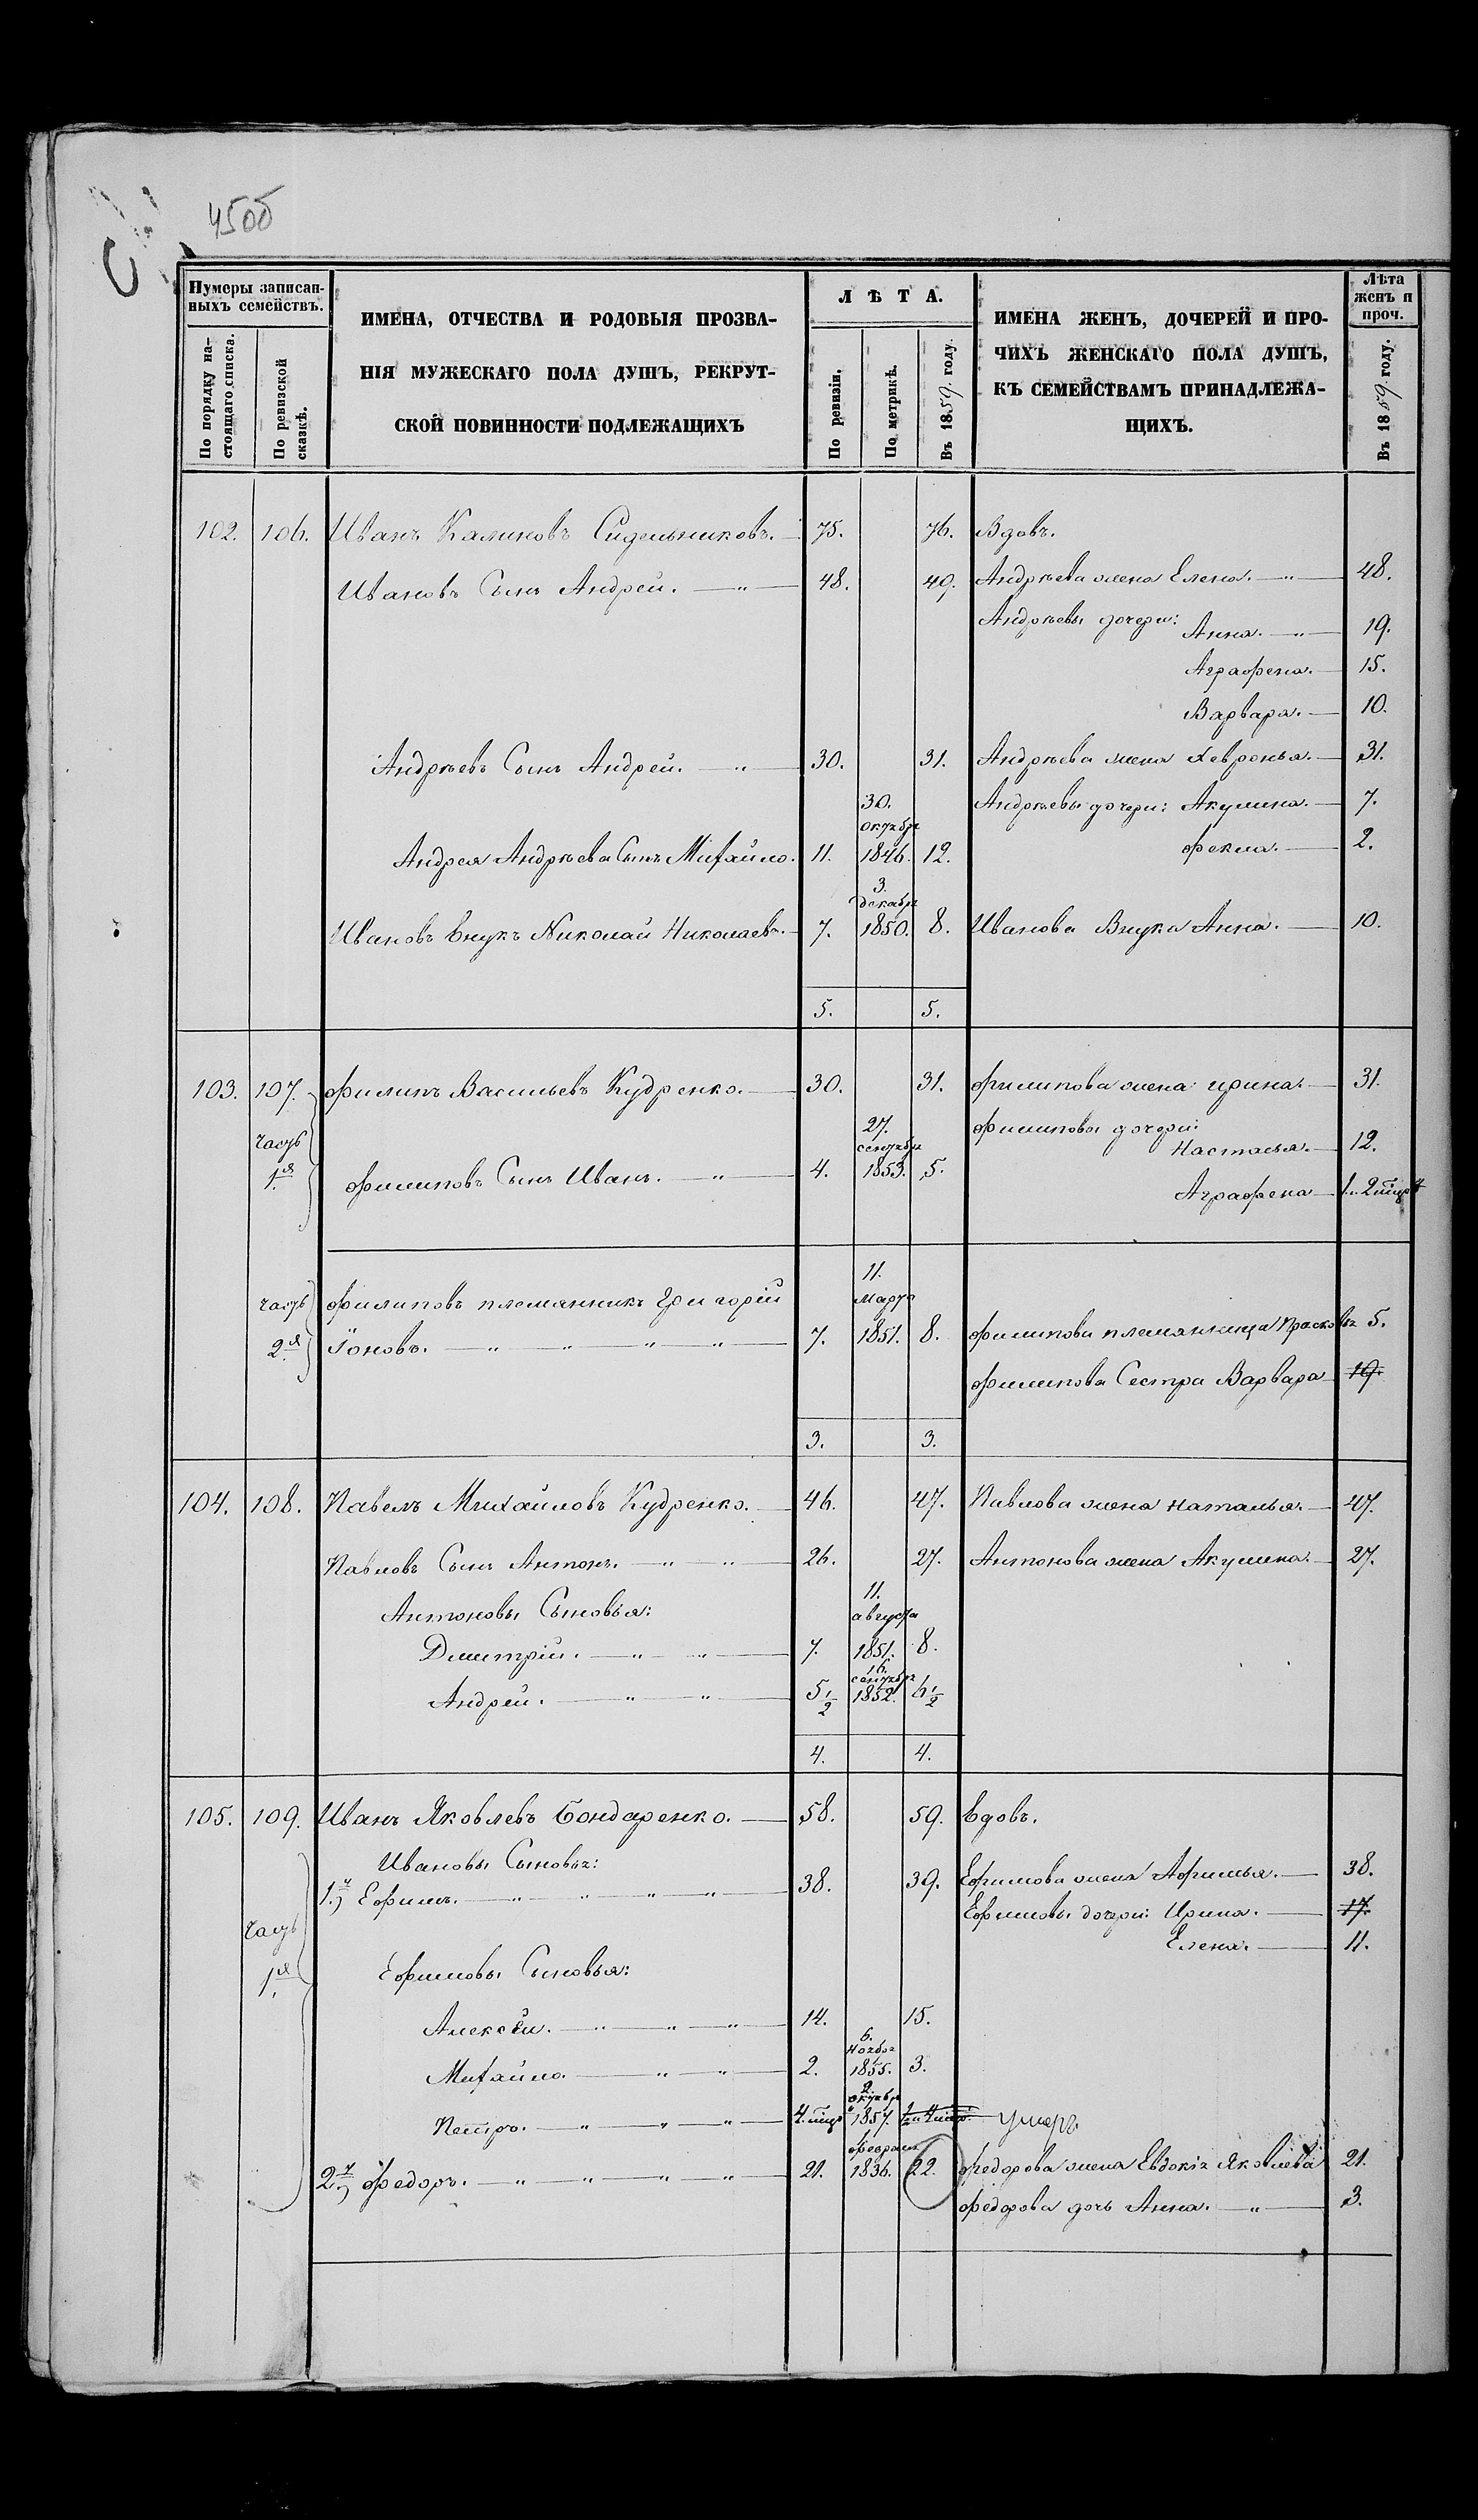 450б
Нумеры записан-
ныхъ семействъ.
По порядку на-
стоящаго списка.
По ревизской
сказкѣ.
ИМЕНА, ОТЧЕСТВА И РОДОВЫЯ ПРОЗВА-
НІЯ МУЖЕСКАГО ПОЛА ДУШЪ, РЕКРУТ-
СКОЙ ПОВИННОСТИ ПОДЛЕЖАЩИХЪ
ЛѢТА.
По ревизіи.
По метрикѣ.
Въ 1859 году.
ИМЕНА ЖЕНЪ, ДОЧЕРЕЙ И ПРО-
ЧИХЪ ЖЕНСКАГО ПОЛА ДУШЪ,
КЪ СЕМЕЙСТВАМЪ ПРИНАДЛЕЖА-
ЩИХЪ.
Лѣта
женъ и
проч.
Въ 1859 году.
102. 106. Иванъ Калиновъ Сидельниковъ. 75. 76. Вдовъ.
Ивановъ Сынъ Андрей. 48. 49. Андрѣева жена Елена. 48.
Андрѣевы дочери: Анна. 19.
Аграфена. 15.
Варвара. 10.
Андрѣевъ Сынъ Андрей. 30. 31. Андрѣева жена Хевронья. 31.
30. Андрѣевы дочери: Акулина. 7.
октября
Андрея Андрѣева Сынъ Михайло. 11. 1846. 12. Фекла. 2.
3.
декабря
Ивановъ внукъ Николай Николаевъ. 7. 1850. 8. Иванова Внука Анна. 10.
5. 5.
103. 107. Филипъ Васильевъ Кудренко. 30. 31. Филипова жена Ирина. 31.
27. Филиповы дочери:
часть сентября Настасья. 12.
1.я Филиповъ Сынъ Иванъ. 4. 1853. 5.
Аграфена 1.
11.
часть Филиповъ племянникъ Григорій марта
2.я Іоновъ. 7. 1851. 8. Филипова племянница Прасковья 5.
Филипова Сестра Варвара 19.
3. 3.
104. 108. Павелъ Михайловъ Кудренко. 46. 47. Павлова жена Наталья. 47.
Павловъ Сынъ Антонъ. 26. 27. Антонова жена Акулина. 27.
11.
Антоновы Сыновья: августа
Дмитрій. 7. 1851. 8.
16.
сентября
Андрей. 5 1/2 1852. 6 1/2
4. 4.
105. 109. Иванъ Яковлевъ Бондаренко. 58. 59. Вдовъ.
Ивановы Сыновья:
1.й) Ефимъ. 38. 39. Ефимова жена Афимья. 38.
Ефимовы дочери: Ирина. 17.
часть Елена. 11.
1.я Ефимовы Сыновья:
Алексѣй. 14. 15.
6.
ноября
Михайло. 2. 1855. 3.
2.
октября
Петръ. 4. 1857. умеръ
февраля
2.й) Федоръ. 21. 1836. 22. Федорова жена Евдокія Яковлева 21.
Федорова дочь Анна. 3.